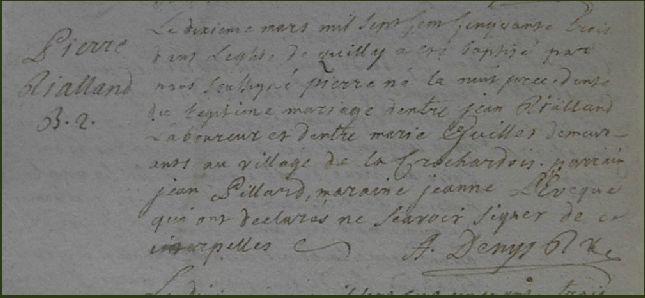 Pierre
Rialland
B. 2.
Le dixieme mars mil sept Cen Cinquante trois
dans Leglise de quilly a eté baptisé par
nous soussigné pierre né la nuit precedente
du legitime mariage dentre jean Rialland
Laboureur et dentre marie Guillet demeur-
ants au village de la Crochardais. parrain
jean Pillard, maraine jeanne Leveque
qui ont declarés ne scavoir signer de ce
interpelles A. Denys